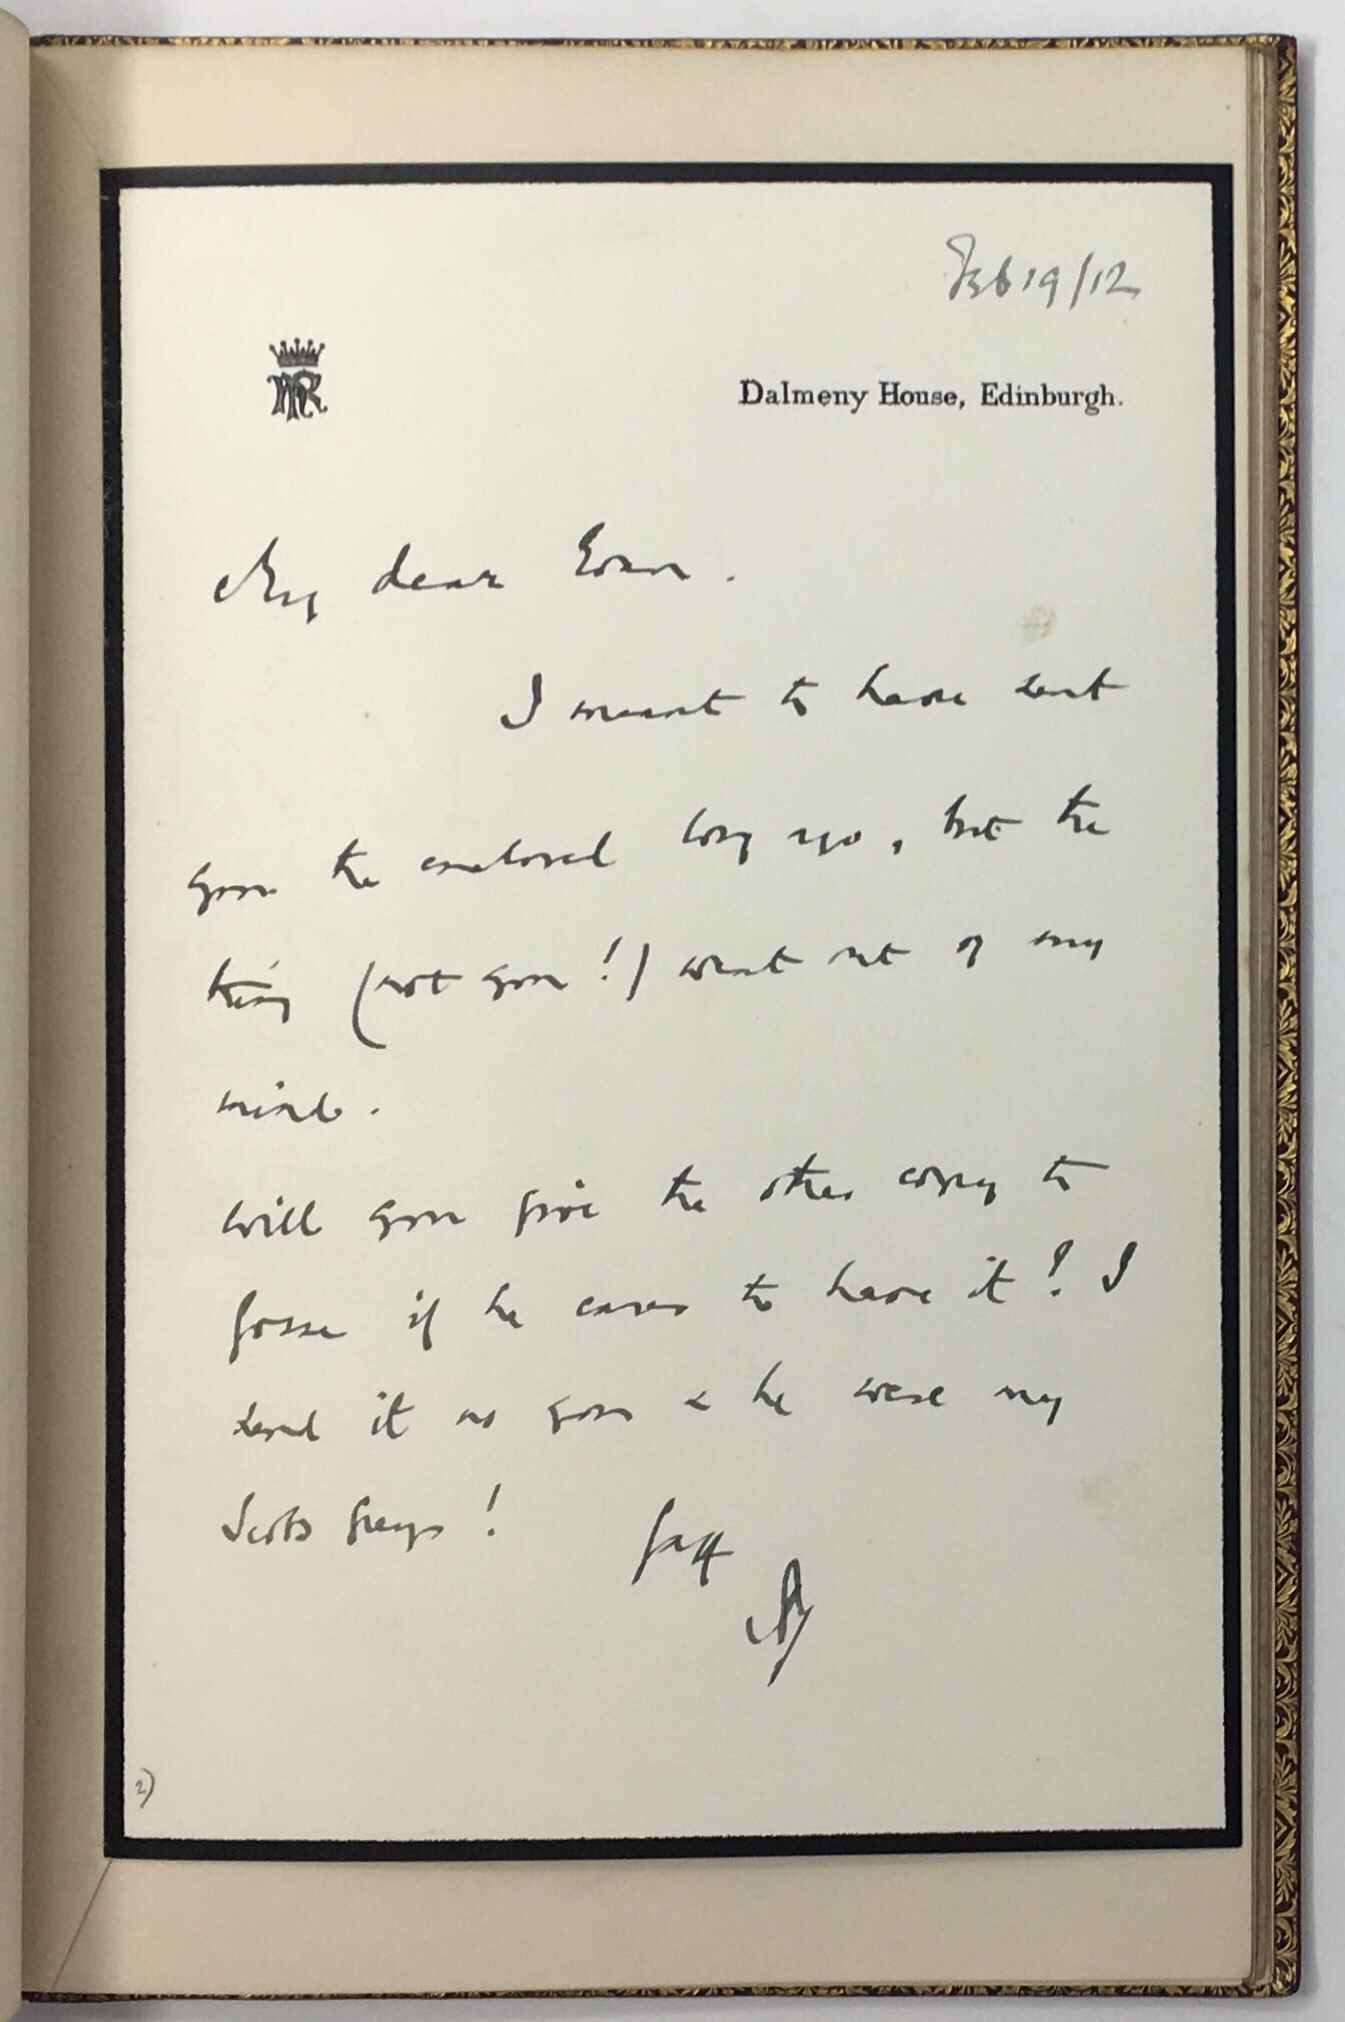 Feb 19/12
Dalmeny House, Edinburgh.
My dear Evan.
I meant to have sent
you the enclosed long ago, but the
thing (not you!) went out of my
mind.
Will you give the other copy to
Gosse if he cares to have it? I
send it as you & he were my
Scots Greys!
AR
2)